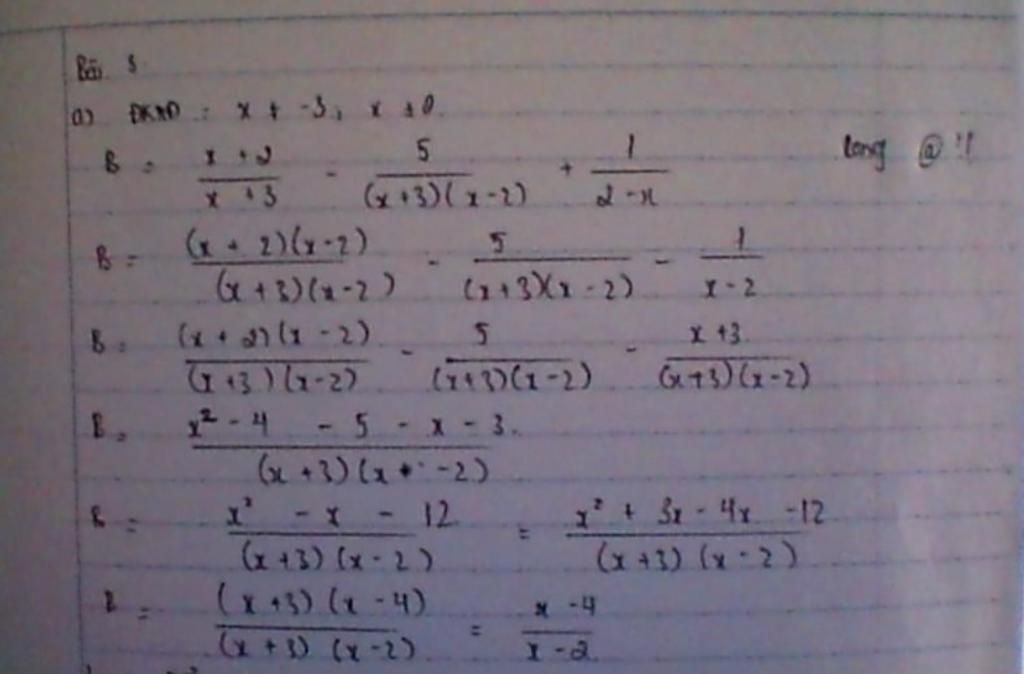 Bài 3
a) ĐKXĐ : x ≠ -3, x ≠ 0.
B = \frac{x + 2}{x + 3} - \frac{5}{(x+3)(x-2)} + \frac{1}{2-x}
Long @ !!
B = \frac{(x + 2)(x-2)}{(x+3)(x-2)} - \frac{5}{(x+3)(x-2)} - \frac{1}{x-2}
B = \frac{(x + 2)(x - 2)}{(x+3)(x-2)} - \frac{5}{(x+3)(x-2)} - \frac{x+3}{(x+3)(x-2)}
B = \frac{x^2 - 4 - 5 - x - 3}{(x+3)(x-2)}
B = \frac{x^2 - x - 12}{(x+3)(x-2)} = \frac{x^2 + 3x - 4x - 12}{(x+3)(x-2)}
B = \frac{(x+3)(x-4)}{(x+3)(x-2)} = \frac{x-4}{x-2}